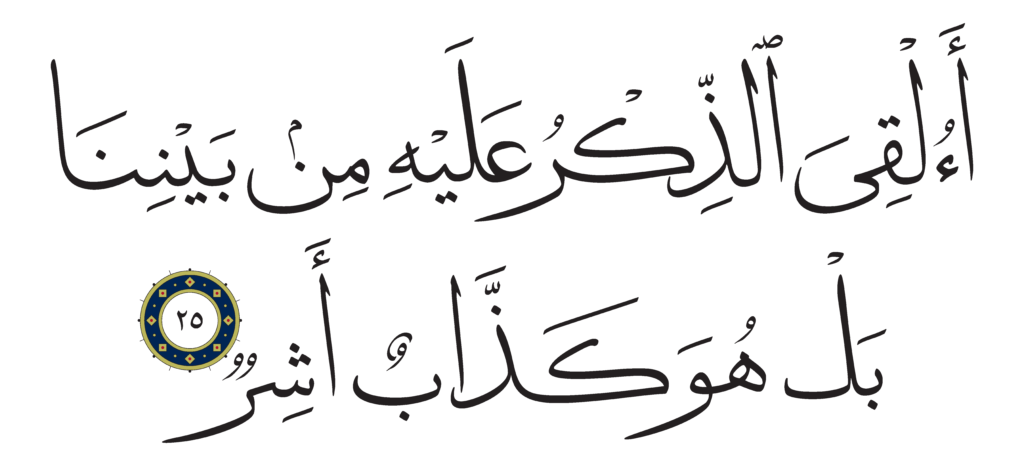 أَءُلْقِىَ ٱلذِّكْرُ عَلَيْهِ مِنۢ بَيْنِنَا
بَلْ هُوَ كَذَّابٌ أَشِرٌۭ ٢٥